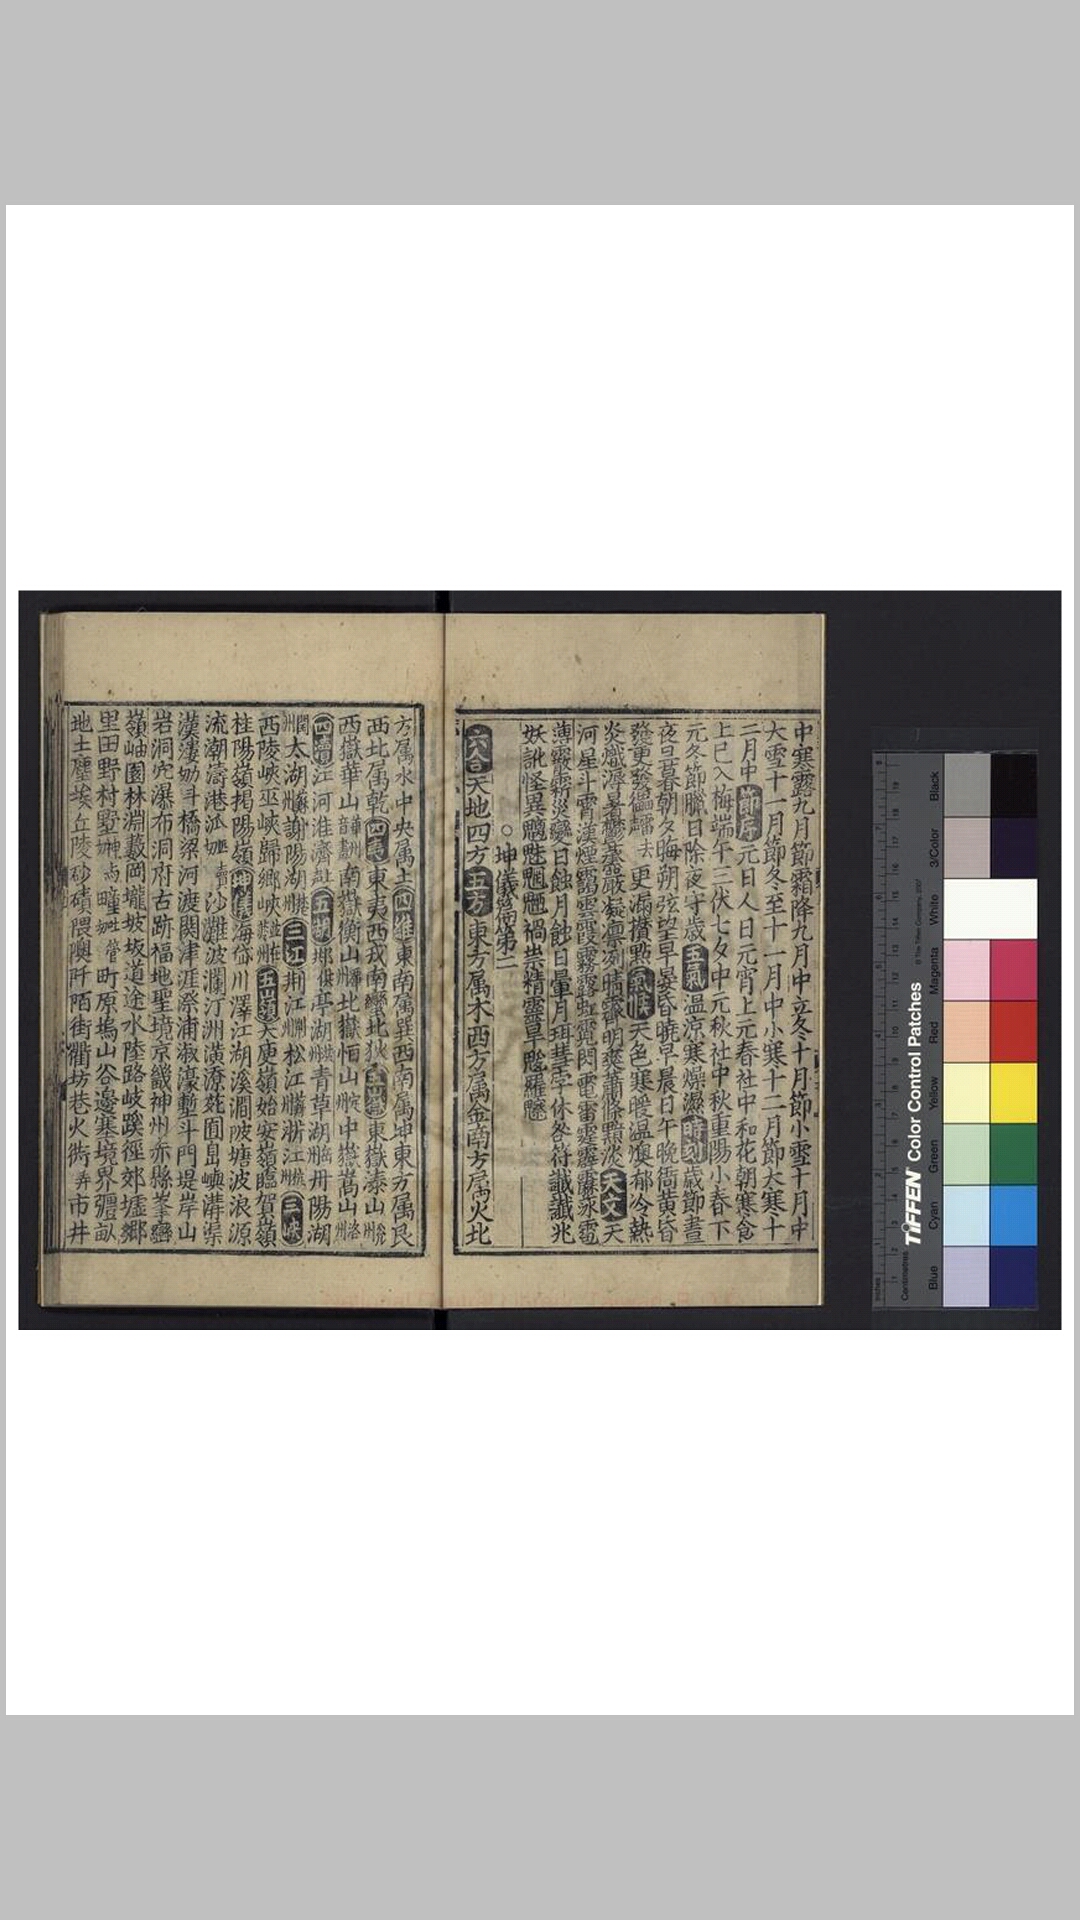 中寒露九月節霜降九月中立冬十月節小雪十月中
大雪十一月節冬至十一月中小寒十二月節大寒十
二月中節序元日人日元宵上元春社中和花朝寒食
上巳入梅端午三伏七夕中元秋社中秋重陽小春下
元冬節臘日除夜守歲五氣温涼寒燥濕時刻歲節晝
夜旦暮朝夕晦朔弦望早晏昏曉早晨日午晚衙黄昏
更漏攢點氣候天色寒暖温燠郁冷熱
炎熾溽暑鬱蒸嚴凝凛冽晴霽明爽蕭條黯淡天文天
河星斗霄漢煙靄雲霞霧露虹霓閃電雷霆霹靂氷雹
薄霰霜災變日蝕月蝕日暈月珥彗孛休咎符讖讖兆
妖訛怪異魑魅魍魎禍祟精靈旱魃羅睺
坤儀篇第二
六合天地四方五方東方属木西方属金南方属火北
方属水中央属土四維東南属巽西南属坤東方属艮
西北属乾四夷東夷西戎南蠻北狄五嶽東嶽泰山
西嶽華山南嶽衡山北嶽恒山中嶽嵩山
四瀆江河淮濟五湖亭湖青草湖丹陽湖
太湖謝陽湖三江荆江松江浙江三峽
西陵峽巫峽歸鄉峽五嶺大庾嶺始安嶺臨賀嶺
桂陽嶺揭陽嶺坤儀海岱川澤江湖溪澗陂塘波浪源
流潮濤港派沙灘波瀾汀洲潢潦苑囿島嶼溝渠
漢溇斗橋梁河渡関津涯際浦溆濠塹斗門堤岸山
岩洞穴瀑布洞府古跡福地聖境京畿神州赤縣峯巒
嶺岫園林淵藪岡壠坡坂道途水陸路岐蹊徑郊墟鄉
里田野村墅疃町原塢山谷邊塞境界疆畝
地土塵埃丘陵砂磧隈隩阡陌街衢坊巷火衖市井
TIFFEN Color Control Patches
© The Tiffen Company, 2007
Inches
Centimetres
Blue
Cyan
Green
Yellow
Red
Magenta
White
3/Color
Black